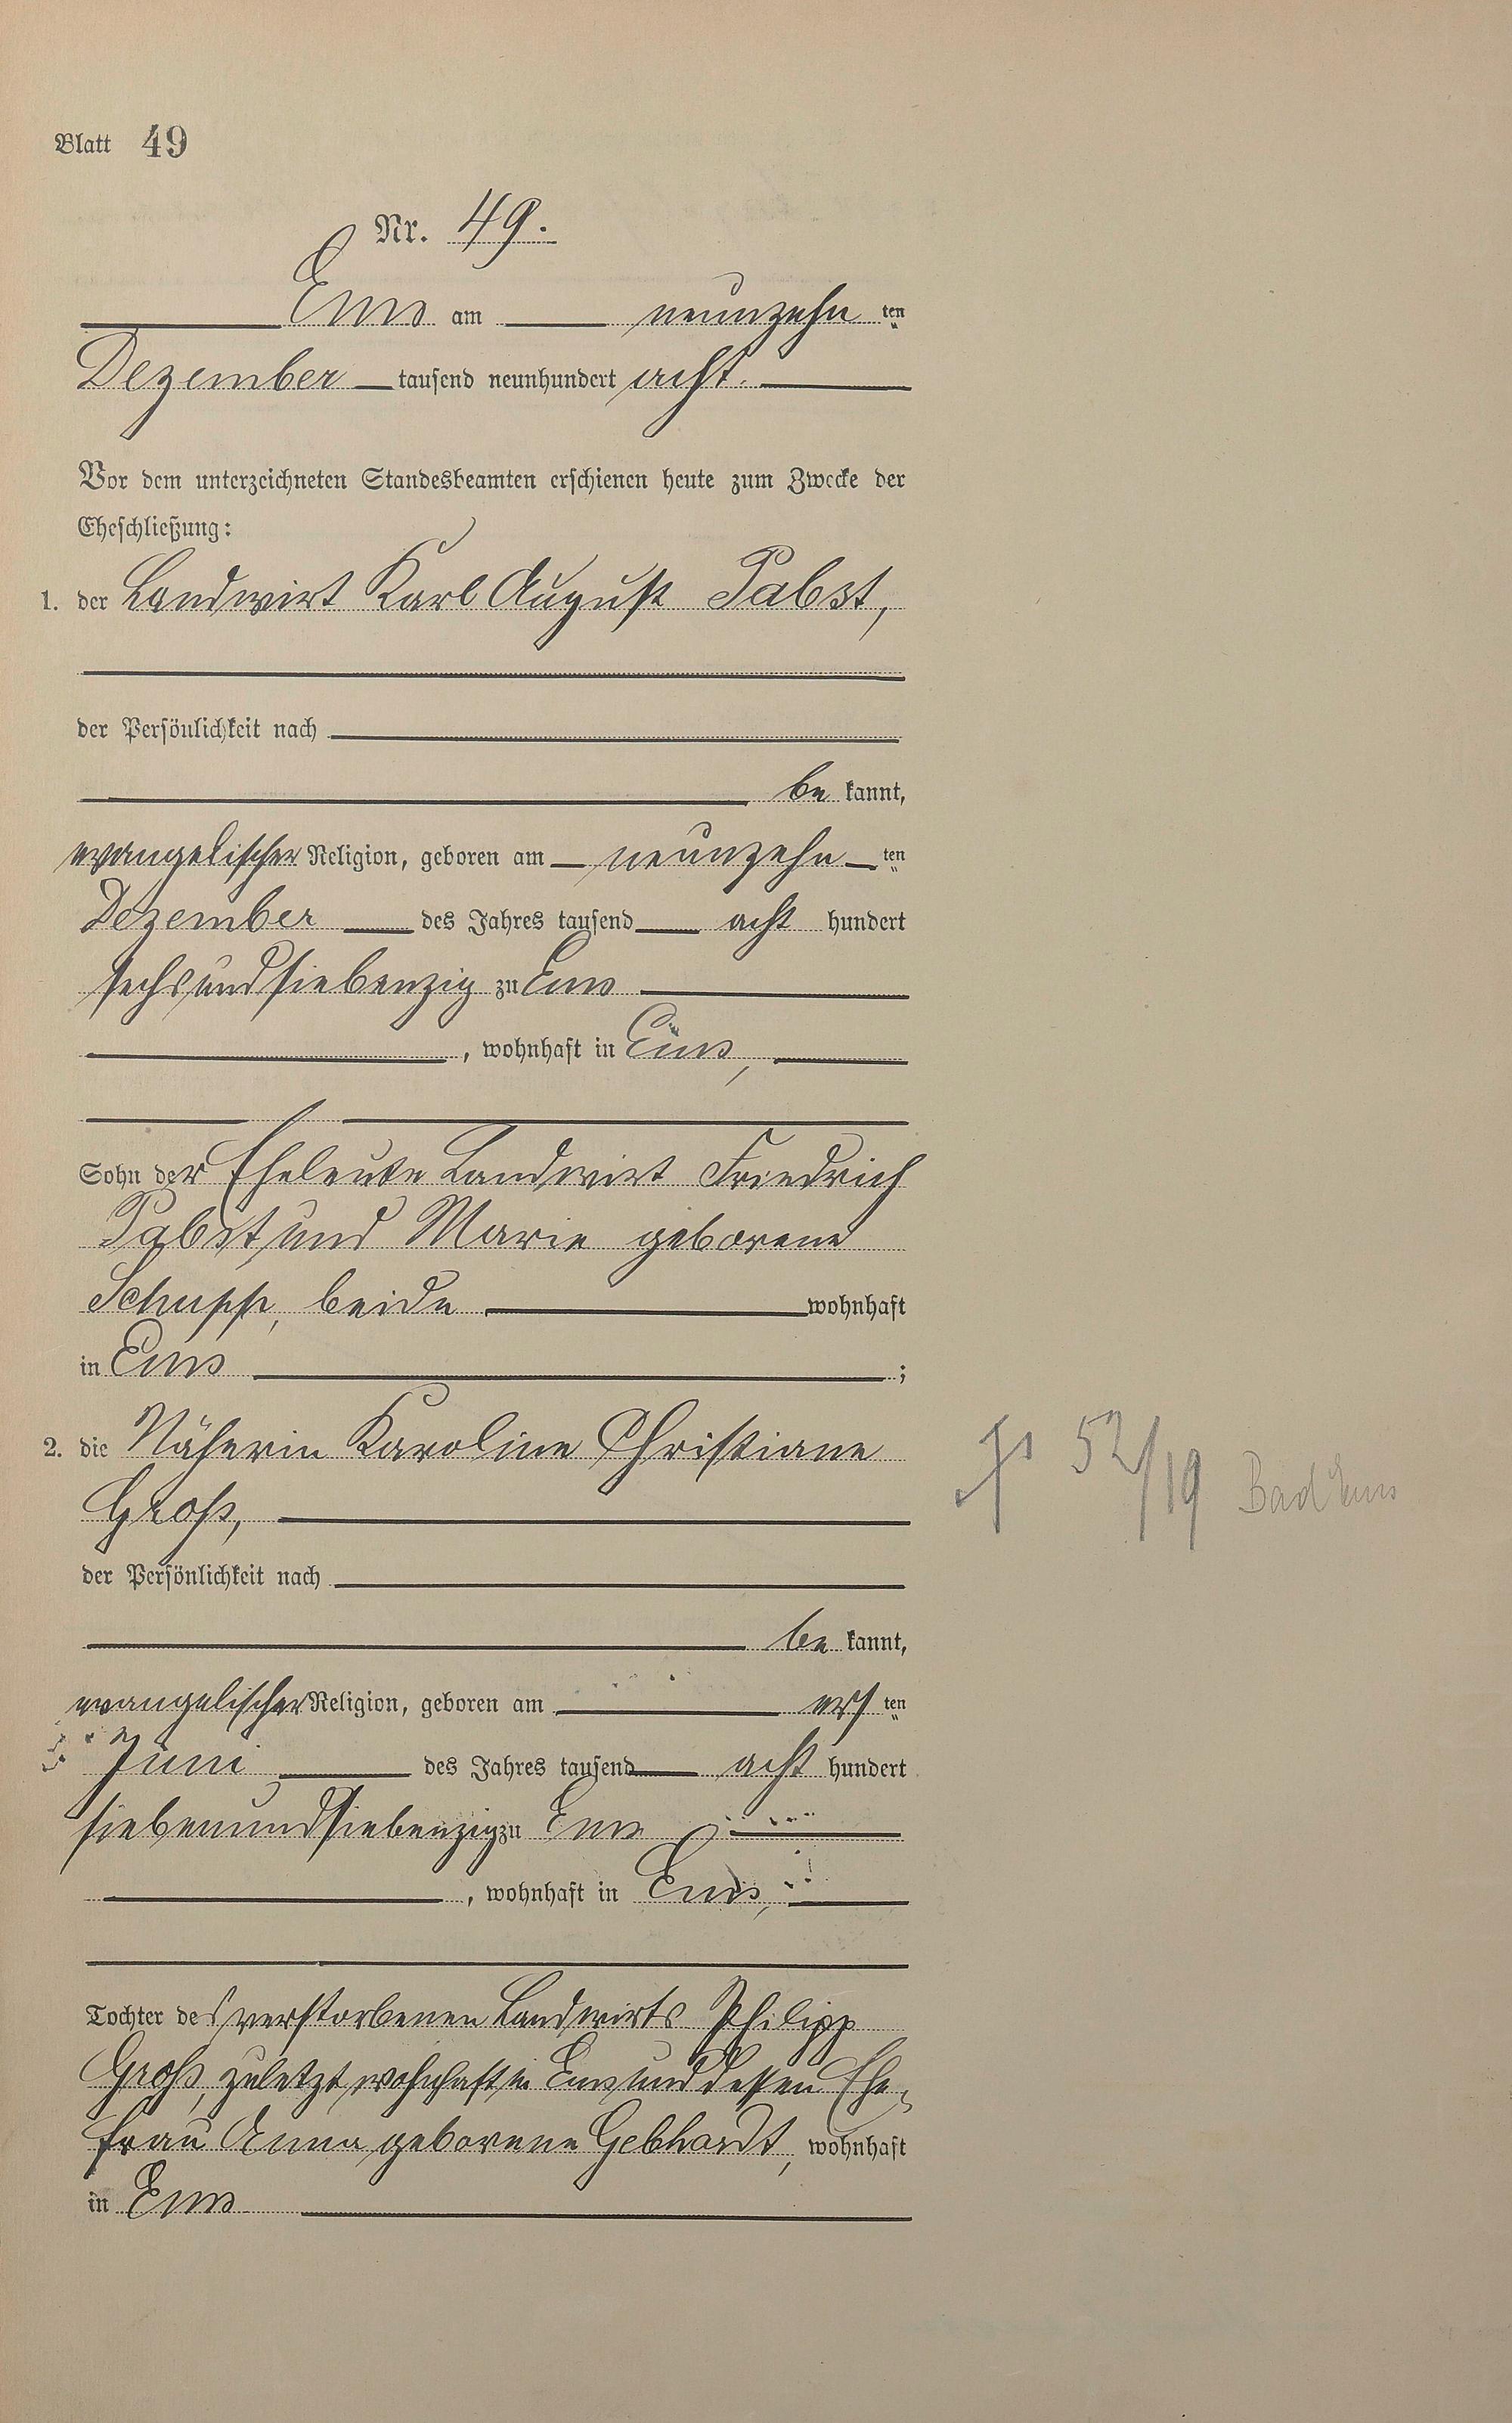 Blatt 49
Nr. 49.
Ems am neunzehn ten
Dezember tausend neunhundert acht.
Vor dem unterzeichneten Standesbeamten erschienen heute zum Zwecke der
Eheschließung:
1. der Landwirt Karl August Pabst,
der Persönlichkeit nach
be kannt,
evangelischer Religion, geboren am neunzehn ten
Dezember des Jahres tausend acht hundert
sechsundsiebenzig zu Ems
, wohnhaft in Ems,
Sohn der Eheleute Landwirt Friedrich
Pabst und Marie geborene
Schupp, beide wohnhaft
in Ems ;
2. die Näherin Karoline Christiane
Groß,
der Persönlichkeit nach
be kannt,
evangelischer Religion, geboren am ers ten
Juni des Jahres tausend acht hundert
siebenundsiebenzig zu Ems
, wohnhaft in Ems,
Tochter des verstorbenen Landwirts Philipp
Groß, zuletzt wohnhaft in Ems und dessen Ehe-
frau Anna geborene Gebhardt, wohnhaft
in Ems
52/19 Bad Ems